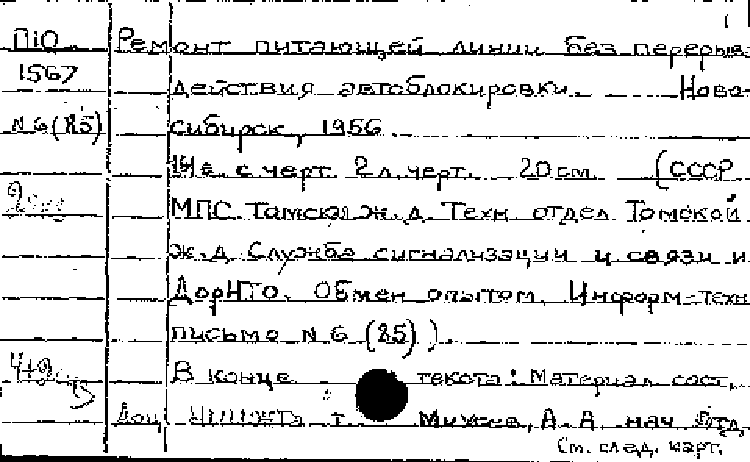 ПiО Ремонт питающей линии без перерыва
1567 действия автоблокировки. Ново-
N 6 (85) сибирск, 1956.
с черт. 2 л. черт. 20 см. (СССР
МПС Томская ж.д. Техн. отдел Томской
ж.д. Служба сигнализации и связи и
ДорНТО. Обмен опытом. Информ-техн
письмо N 6 (85))
В конце текста: Материал сост.
Доц. т. А.А. нач. отд.
См. след. карт.